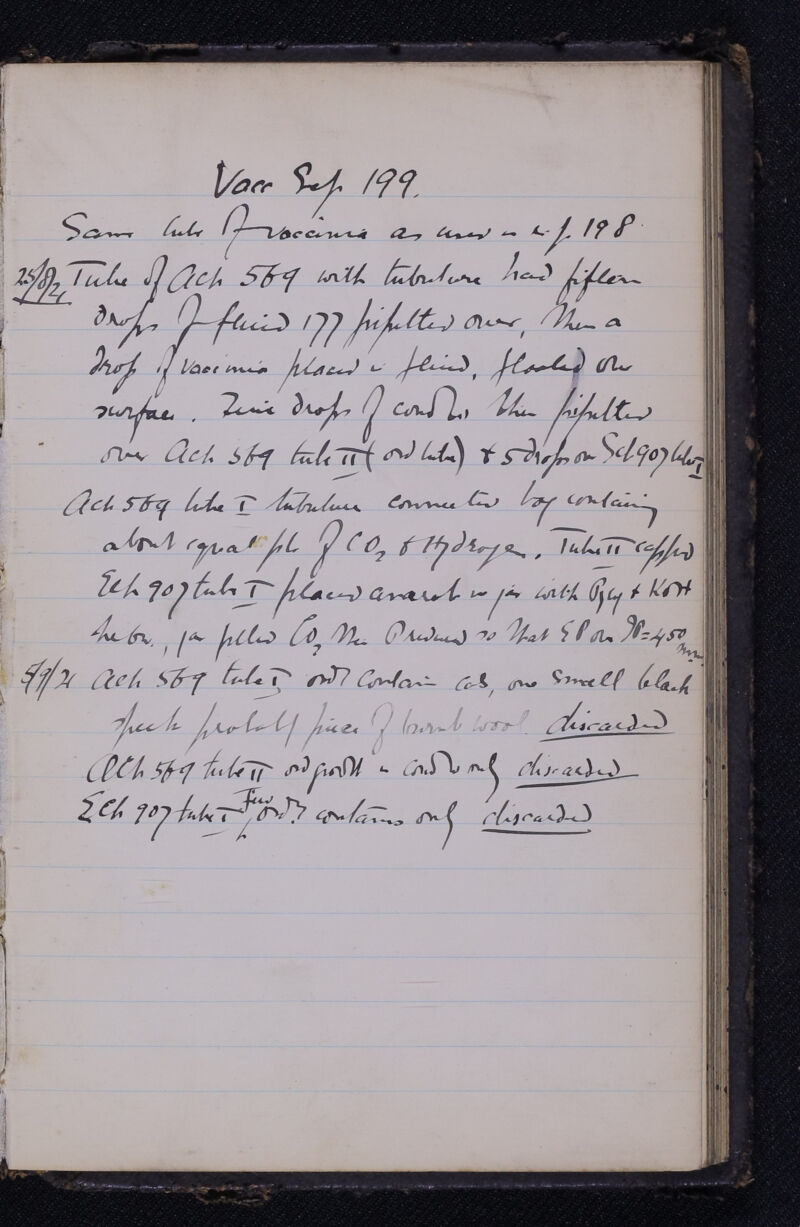 Vacc Exp 199.
Same tube of vaccinia as used in exp. 198
25/8/21 Tube of Ach 569 with tubulure had fifteen
drops of fluid 177 pipetted over, then a
drop of vaccinia placed in fluid, floated on
surface. Five drops of cond then pipetted
over Ach 569 tube II (ord tube) & 5 drops on Ech 907 tube I
Ach 569 tube I tubulure connected bag containing
about equal pts of CO2 & Hydrogen. Tube II capped
Ech 907 tube I placed anaerob in jar with Pyrg + KOH
jar filled CO2 then P reduced so that
5/9/21 Ach 569 tube I, ordy contam cols, one small black
speck probably piece of burnt wool discarded
Ach 569 tube II ord growth in cond only discarded
Ech 907 tube I Few ordy contams only discarded